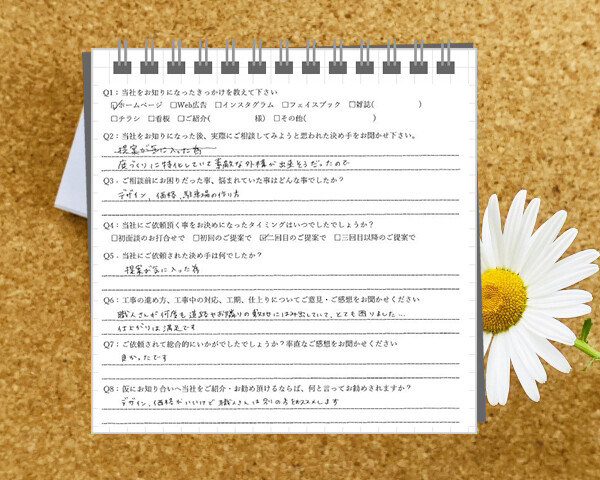 Q1：当社をお知りになったきっかけを教えて下さい
☑ホームページ □Web広告 □インスタグラム □フェイスブック □雑誌( )
□チラシ □看板 □ご紹介( 様) □その他( )
Q2：当社をお知りになった後、実際にご相談してみようと思われた決め手をお聞かせ下さい。
提案が気に入った為
庭づくりに特化していて素敵な外構が出来そうだったので
Q3．ご相談前にお困りだった事、悩まれていた事はどんな事でしたか？
デザイン、価格、駐車場の作り方
Q4：当社にご依頼頂く事をお決めになったタイミングはいつでしたでしょうか？
□初面談のお打合せで □初回のご提案で ☑二回目のご提案で □三回目以降のご提案で
Q5．当社にご依頼された決め手は何でしたか？
提案が気に入った為
Q6：工事の進め方、工事中の対応、工期、仕上りについてご意見・ご感想をお聞かせください
職人さんが何度も道路やお隣りの敷地にはみ出していて、とても困りました…
仕上がりは満足です
Q7：ご依頼されて総合的にいかがでしたでしょうか？率直なご感想をお聞かせください
良かったです
Q8：仮にお知り合いへ当社をご紹介・お勧め頂けるならば、何と言ってお勧めされますか？
デザイン、価格がいいけど職人さんは別の方をおススメします